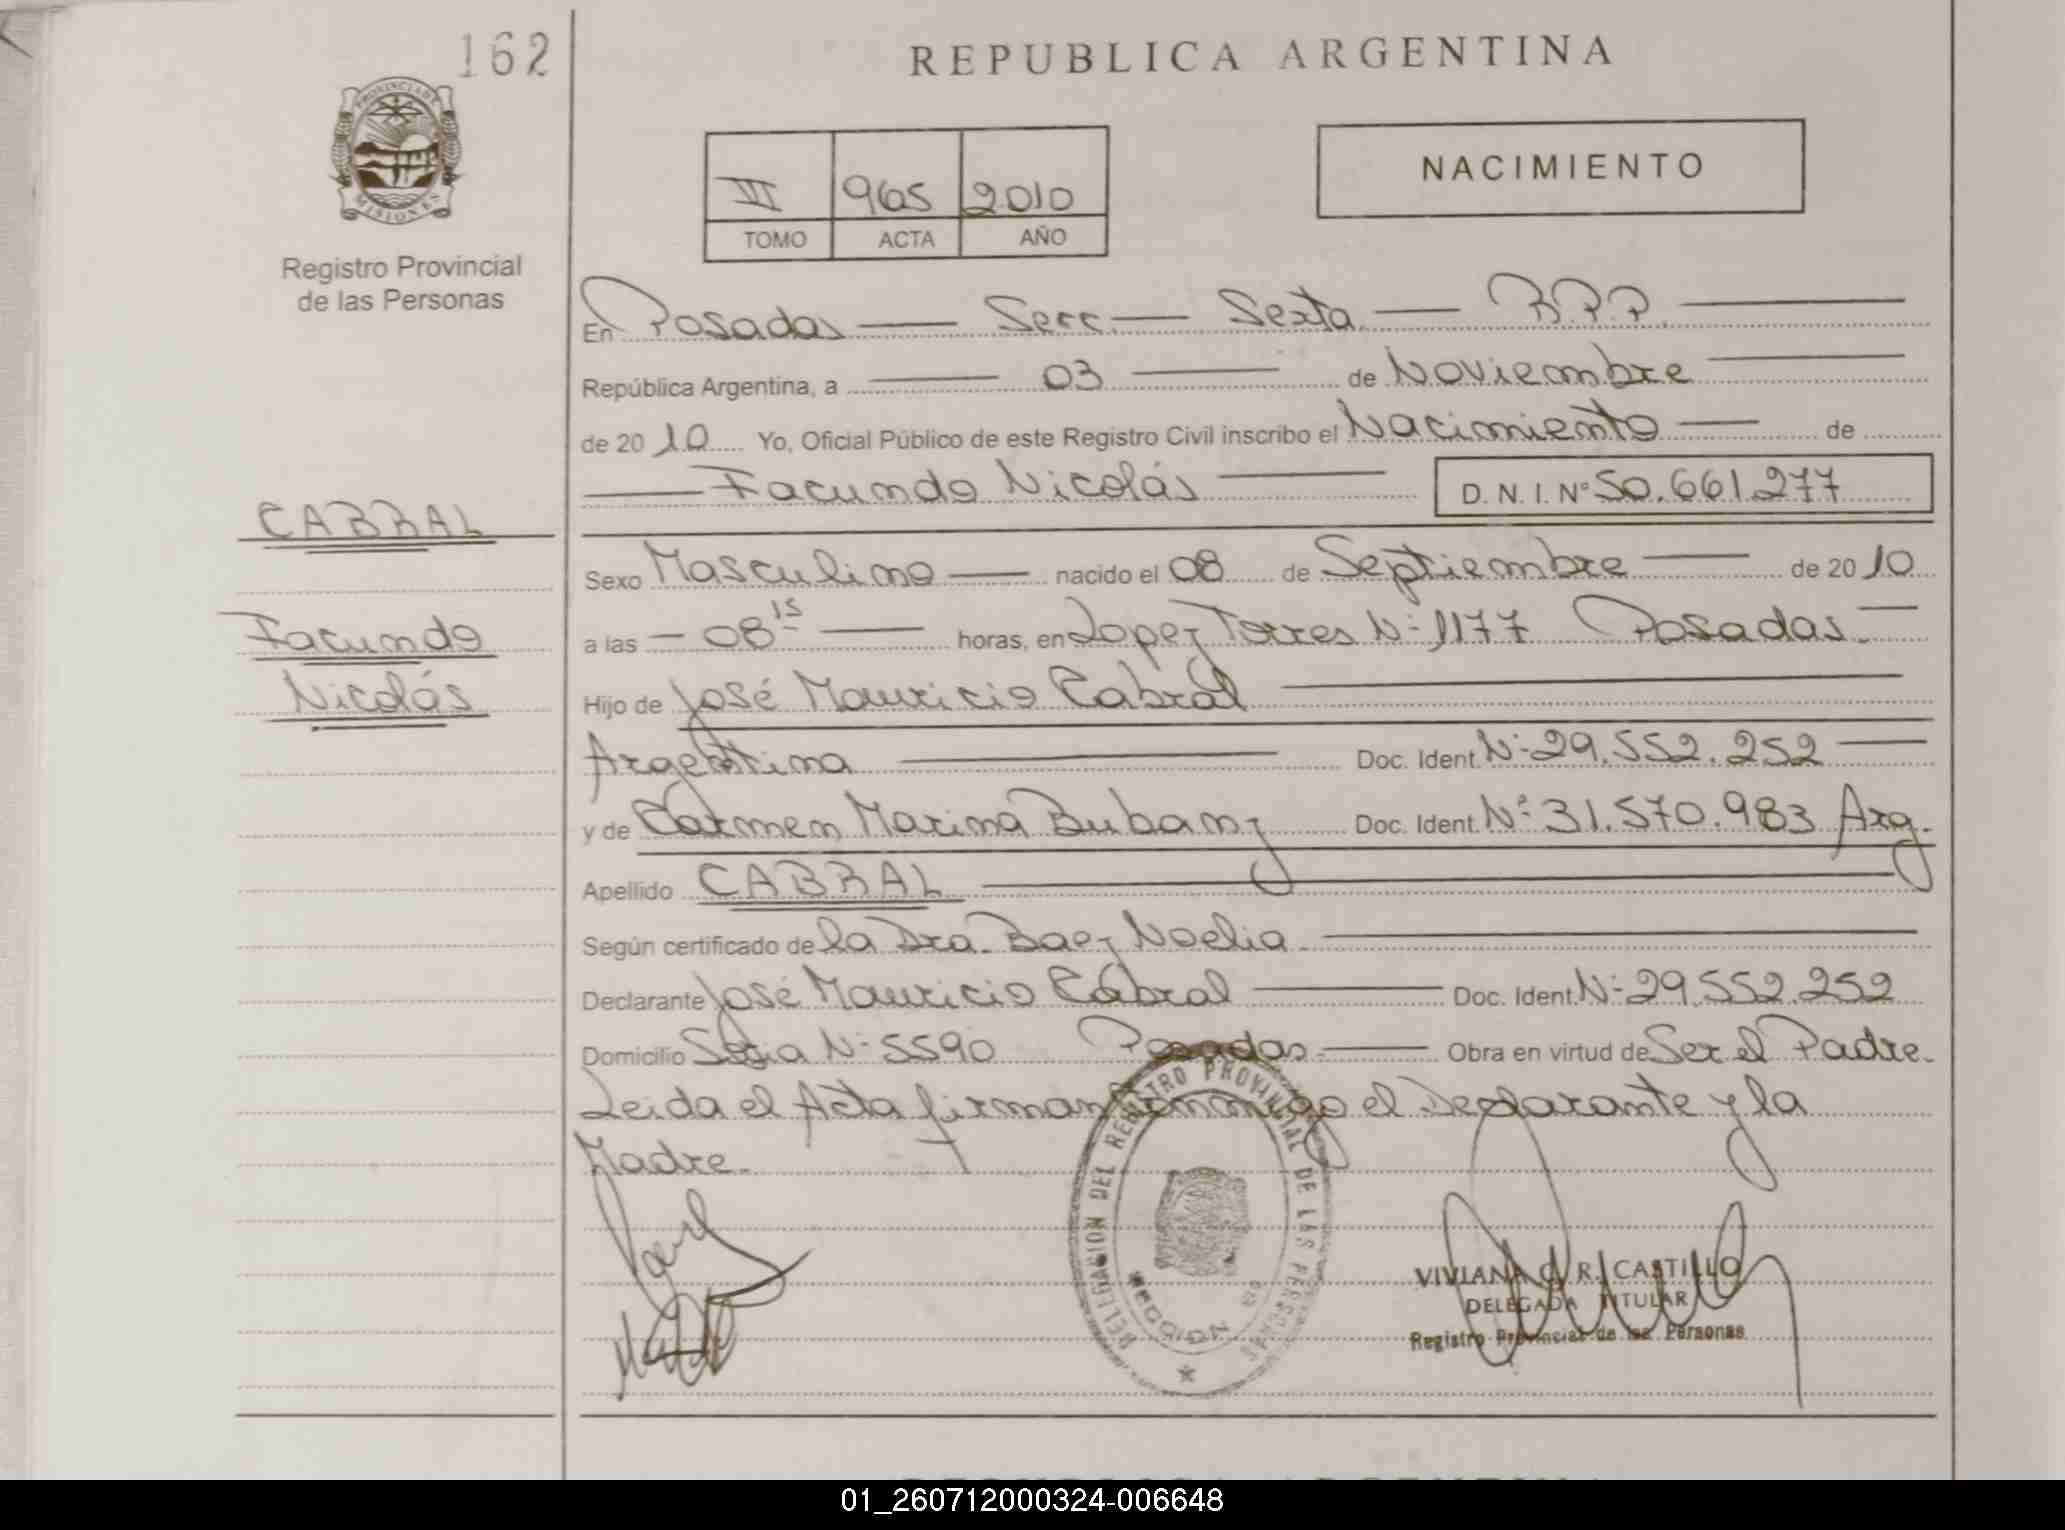 162
REPUBLICA ARGENTINA
PROVINCIA DE
MISIONES
Registro Provincial
de las Personas
965 2010
TOMO ACTA AÑO
NACIMIENTO
En Posadas — Secc. — Sexta — R.P.P.
República Argentina, a — 03 — de Noviembre
de 2010 Yo, Oficial Público de este Registro Civil inscribo el Nacimiento — de
— Facundo Nicolás — D. N. I. Nº 50.661.277
CABRAL
Facundo
Nicolás
Sexo Masculino — nacido el 08 de Septiembre — de 2010
a las — 08 15 — horas, en Lopez Torres Nº 1177 Posadas. —
Hijo de José Mauricio Cabral
Argentina — Doc. Ident. Nº 29.552.252 —
y de Carmen Marina Doc. Ident. Nº 31.570.983 Arg.
Apellido CABRAL
Según certificado de la Dra. Baez Noelia.
Declarante José Mauricio Cabral — Doc. Ident. Nº 29.552.252
Domicilio Nº 5590 Posadas. — Obra en virtud de Ser el Padre.
Leida el Acta firman conmigo el Declarante y la
Madre.
DELEGACION DEL REGISTRO PROVINCIAL DE LAS PERSONAS
SECCION
VIVIANA C. R. CASTILLO
DELEGADA TITULAR
Registro Provincial de las Personas
01_260712000324-006648